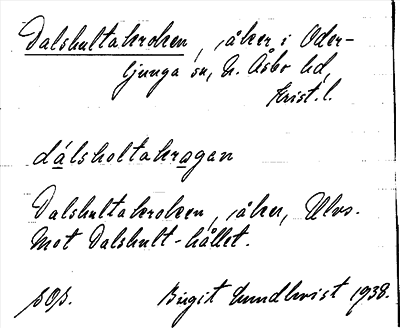 Dalshultakroken, åker i Oder-
ljunga sn, N. Åsbo hd,
Krist. l.
dálsholtakragan
Dalshultakroken, åker, Ulvs.
Mot Dalshult-hållet.
sOs.
Birgit Lundkvist 1938.